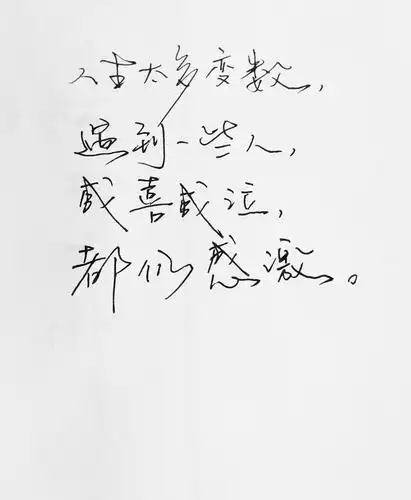 人生太多变数，
遇到一些人，
或喜或泣，
都仍感激。